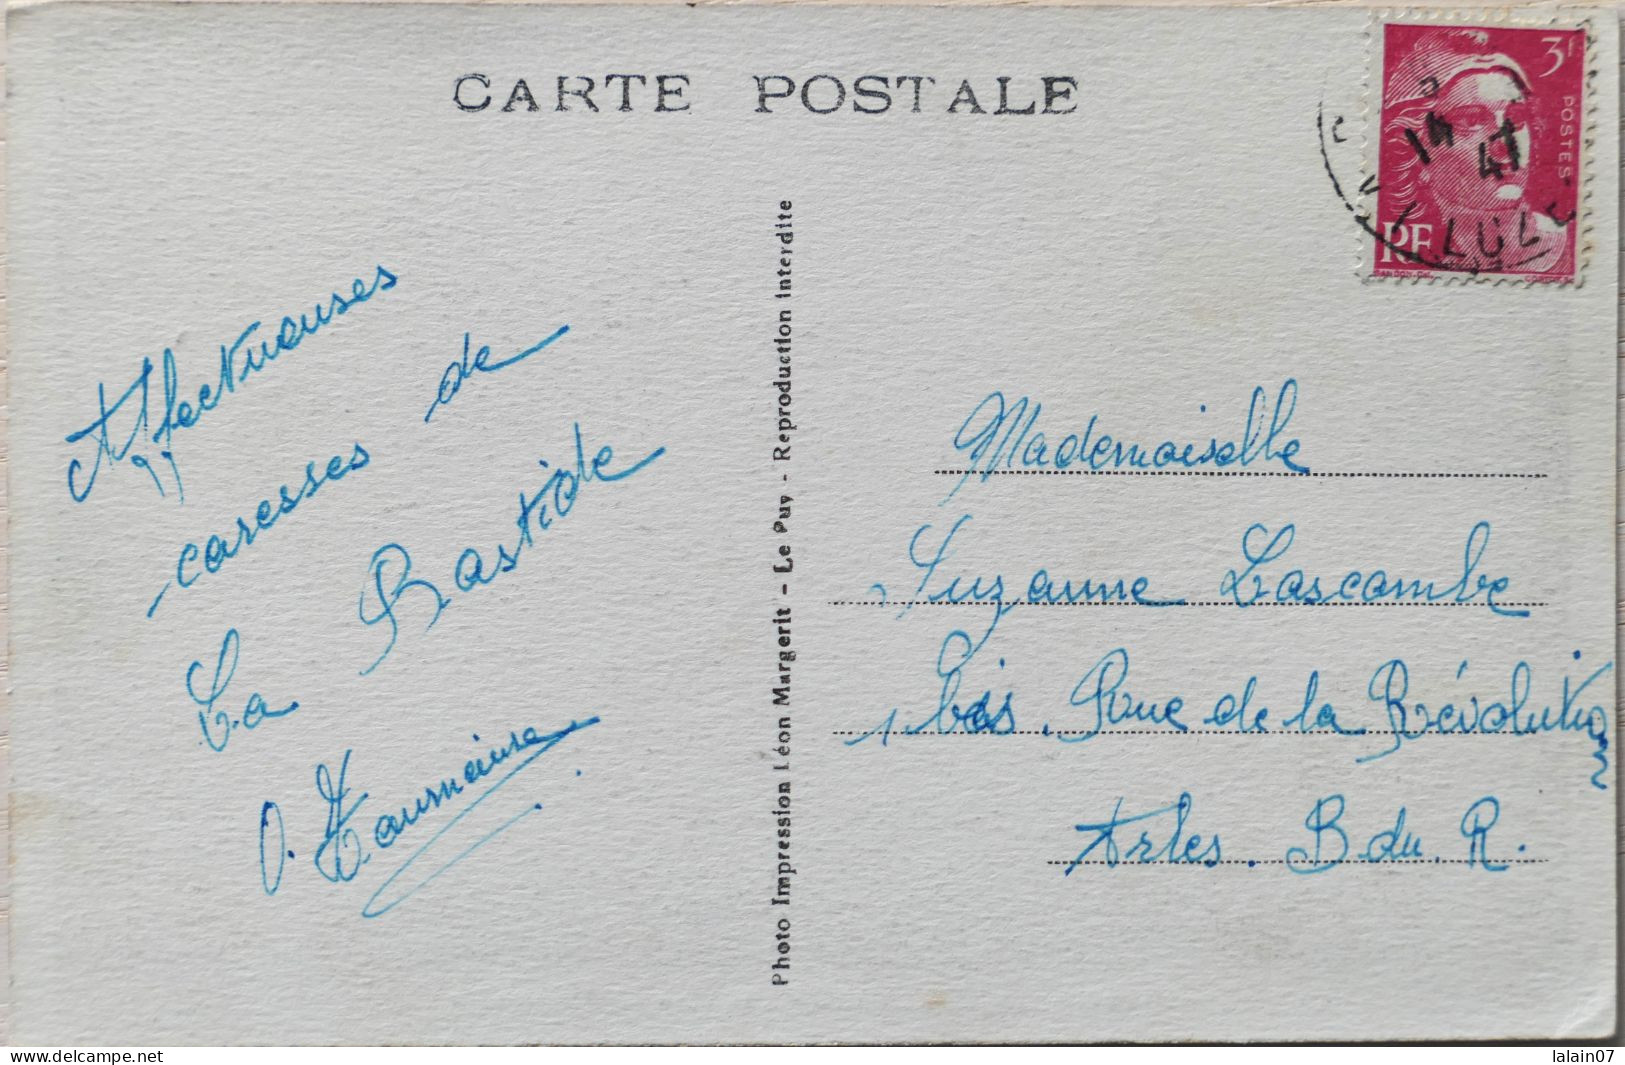 CARTE POSTALE
3F
POSTES
RF
14
47
Affectueuses
caresses de
La Bastide
Photo Impression Léon Margerit - Le Puy - Reproduction interdite
Mademoiselle
Suzanne Lascombe
1 bis. Rue de la Révolution
Arles. B du. R.
delcampe.net
lalain07